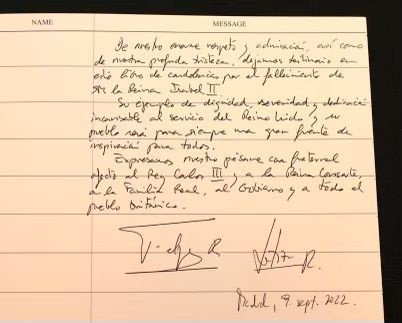 NAME MESSAGE
De nuestro enorme respeto y admiración, así como
de nuestra profunda tristeza, dejamos testimonio en
este libro de condolencias por el fallecimiento de
SM la Reina Isabel II.
Su ejemplo de dignidad, serenidad y dedicación
incansable al servicio del Reino Unido y su
pueblo será para siempre una gran fuente de
inspiración para todos.
Expresamos nuestro pésame con fraternal
afecto al Rey Carlos III y a la Reina Consorte,
a la Familia Real, al Gobierno y a todo el
pueblo británico.
R. R.
9. sept. 2022.